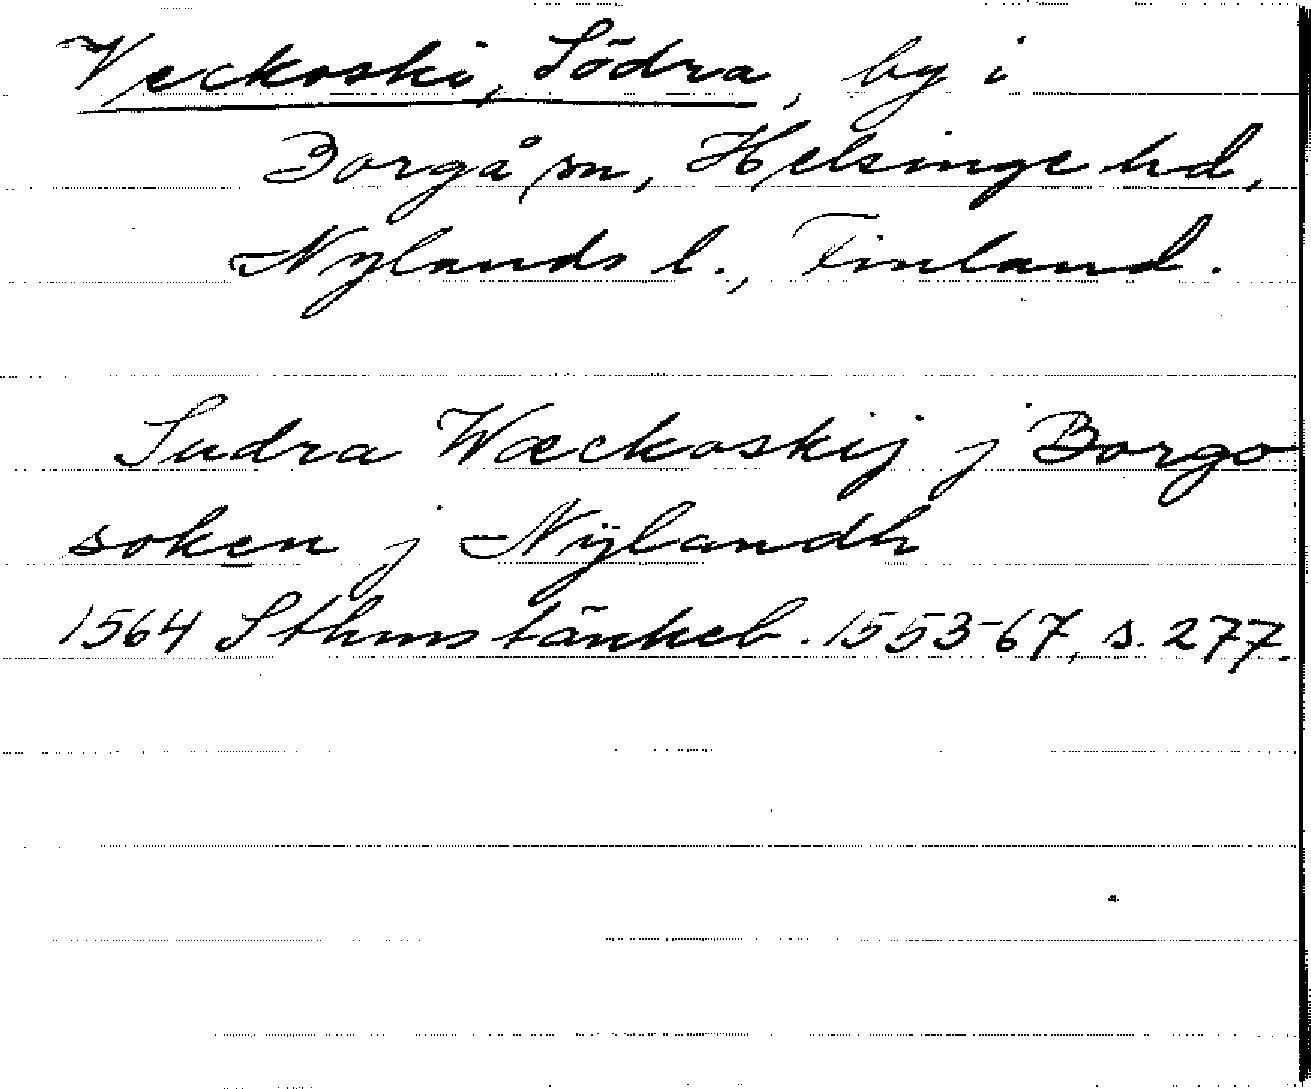 Veckoski, Södra, by i
Borgå sn, Helsinge hd,
Nylands l., Finland.
Sudra Wæckoskij j Borgo
soken j Nÿlandh
1564 Sthms tänkeb. 1553-67, s. 277.